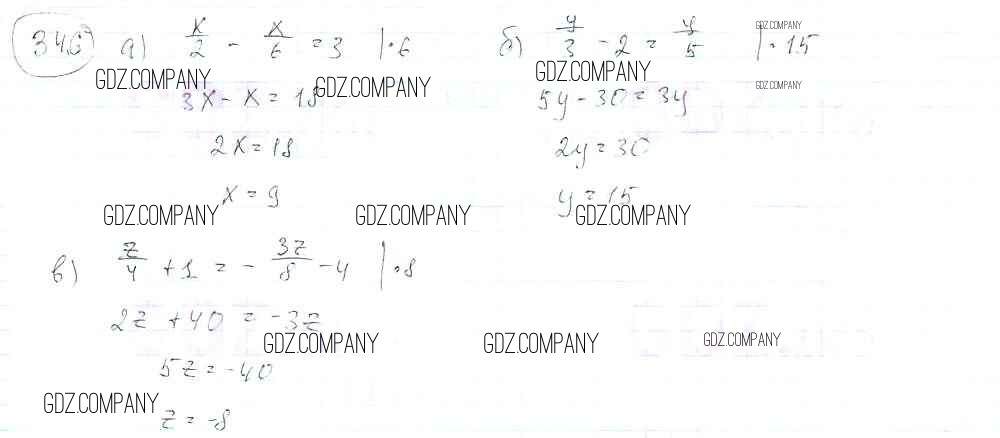 346 а) x/2 - x/6 = 3 |·6
3x - x = 18
2x = 18
x = 9
б) y/3 - 2 = y/5 |·15
5y - 30 = 3y
2y = 30
y = 15
в) z/4 + 1 = - 3z/8 - 4 |·8
2z + 40 = -3z
5z = -40
z = -8
GDZ.COMPANY
GDZ.COMPANY
GDZ.COMPANY
GDZ.COMPANY
GDZ.COMPANY
GDZ.COMPANY
GDZ.COMPANY
GDZ.COMPANY
GDZ.COMPANY
GDZ.COMPANY
GDZ.COMPANY
GDZ.COMPANY